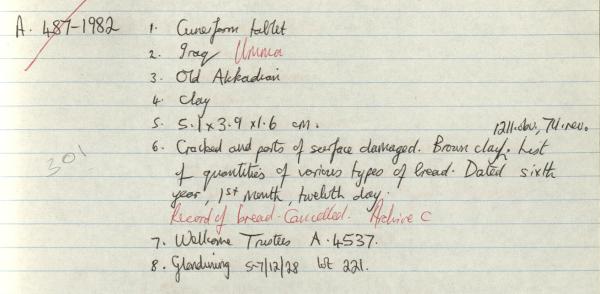 A. 487-1982 1. Cuneiform tablet
2. Iraq Umma
3. Old Akkadian
4. Clay
5. 5.1 x 3.9 x 1.6 cm. 12ll.obv, 7ll.rev.
6. Cracked and parts of surface damaged. Brown clay. List
301 of quantities of various types of bread. Dated sixth
year, 1st month, twelfth day.
Record of bread. Cancelled. Archive C
7. Wellcome Trustees A.4537.
8. Glendining 5-7/12/28 lot 221.